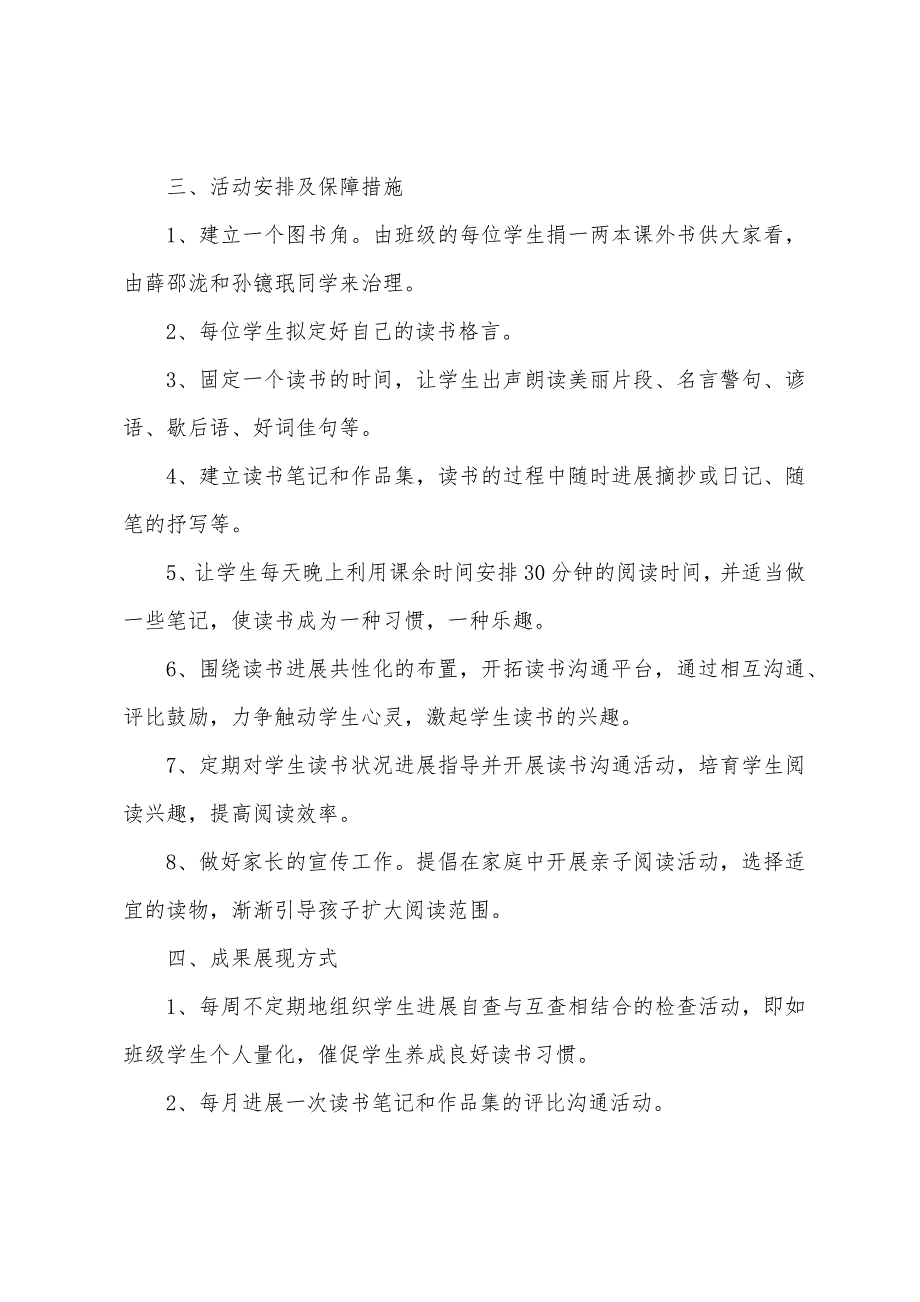 三、活动安排及保障措施
1、建立一个图书角。由班级的每位学生捐一两本课外书供大家看，
由薛邵泷和孙镱珉同学来治理。
2、每位学生拟定好自己的读书格言。
3、固定一个读书的时间，让学生出声朗读美丽片段、名言警句、谚
语、歇后语、好词佳句等。
4、建立读书笔记和作品集，读书的过程中随时进展摘抄或日记、随
笔的抒写等。
5、让学生每天晚上利用课余时间安排30分钟的阅读时间，并适当做
一些笔记，使读书成为一种习惯，一种乐趣。
6、围绕读书进展共性化的布置，开拓读书沟通平台，通过相互沟通、
评比鼓励，力争触动学生心灵，激起学生读书的兴趣。
7、定期对学生读书状况进展指导并开展读书沟通活动，培育学生阅
读兴趣，提高阅读效率。
8、做好家长的宣传工作。提倡在家庭中开展亲子阅读活动，选择适
宜的读物，渐渐引导孩子扩大阅读范围。
四、成果展现方式
1、每周不定期地组织学生进展自查与互查相结合的检查活动，即如
班级学生个人量化，催促学生养成良好读书习惯。
2、每月进展一次读书笔记和作品集的评比沟通活动。